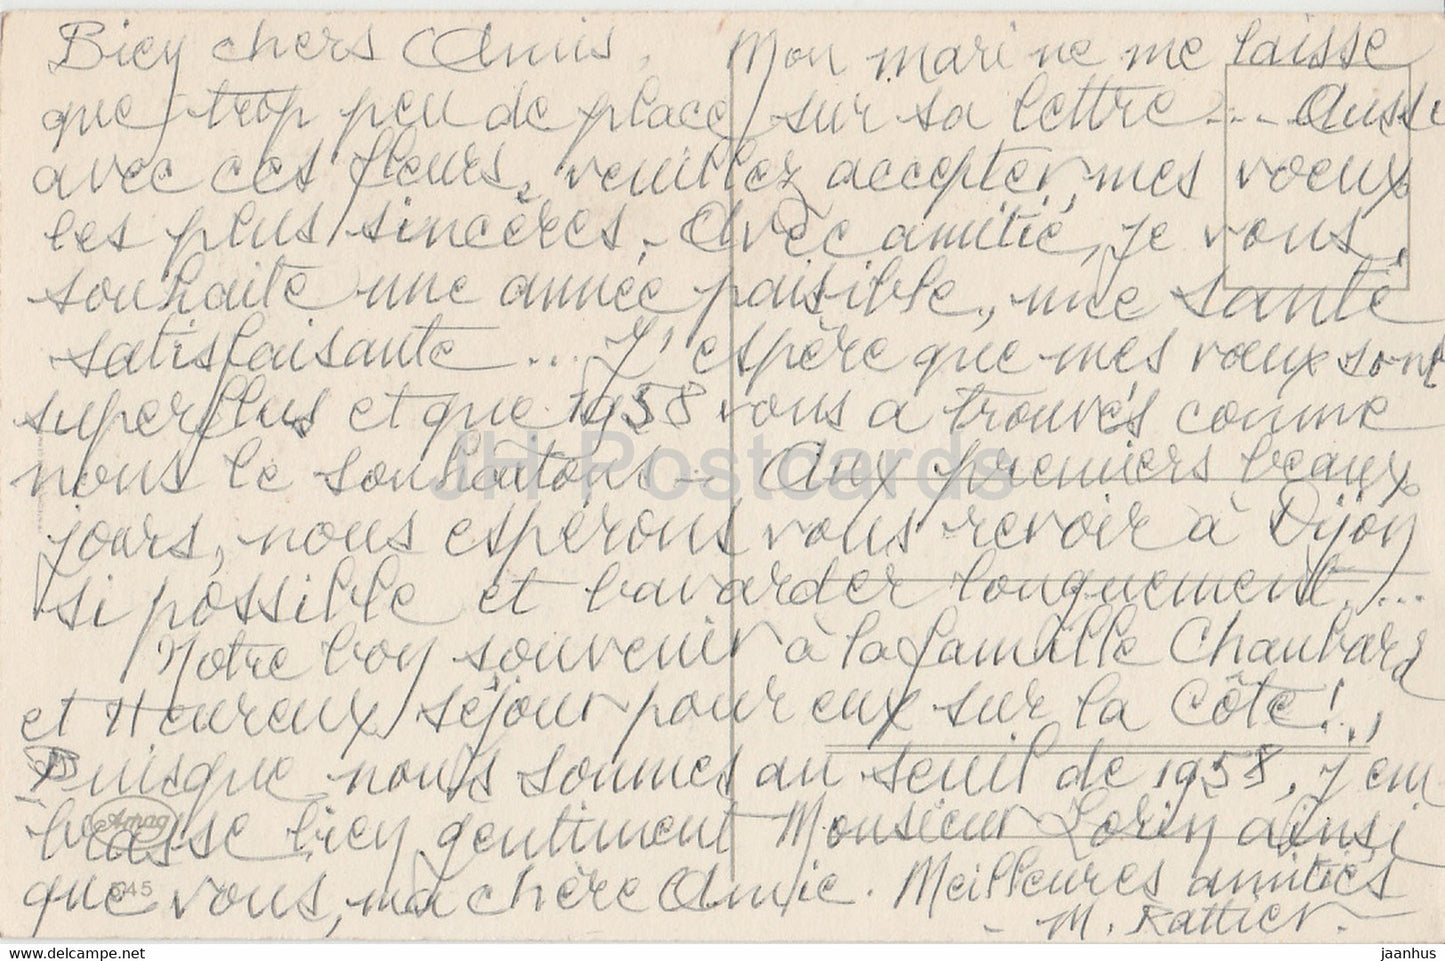 Bien chers Amis. Mon mari ne me laisse
que trop peu de place sur sa lettre... Aussi
avec ces fleurs, veuillez accepter, mes voeux
les plus sincères. Avec amitié, je vous
souhaite une année paisible, une santé
satisfaisante... J'espère que mes voeux sont
superflus et que 1958 vous a trouvés comme
nous le souhaitons - Aux premiers beaux
jours, nous espérons vous revoir à Dijon
si possible et bavarder longuement...
Notre bon souvenir à la famille Chaubard
et Heureux séjour pour eux sur la Côte!..
Puisque nous sommes au seuil de 1958, j'em
brasse bien gentiment Monsieur Lorin ainsi
que vous, ma chère Amie. Meilleures amitiés
- M. Rattier.
Amag
645
JH Postcards
delcampe.net
jaanhus